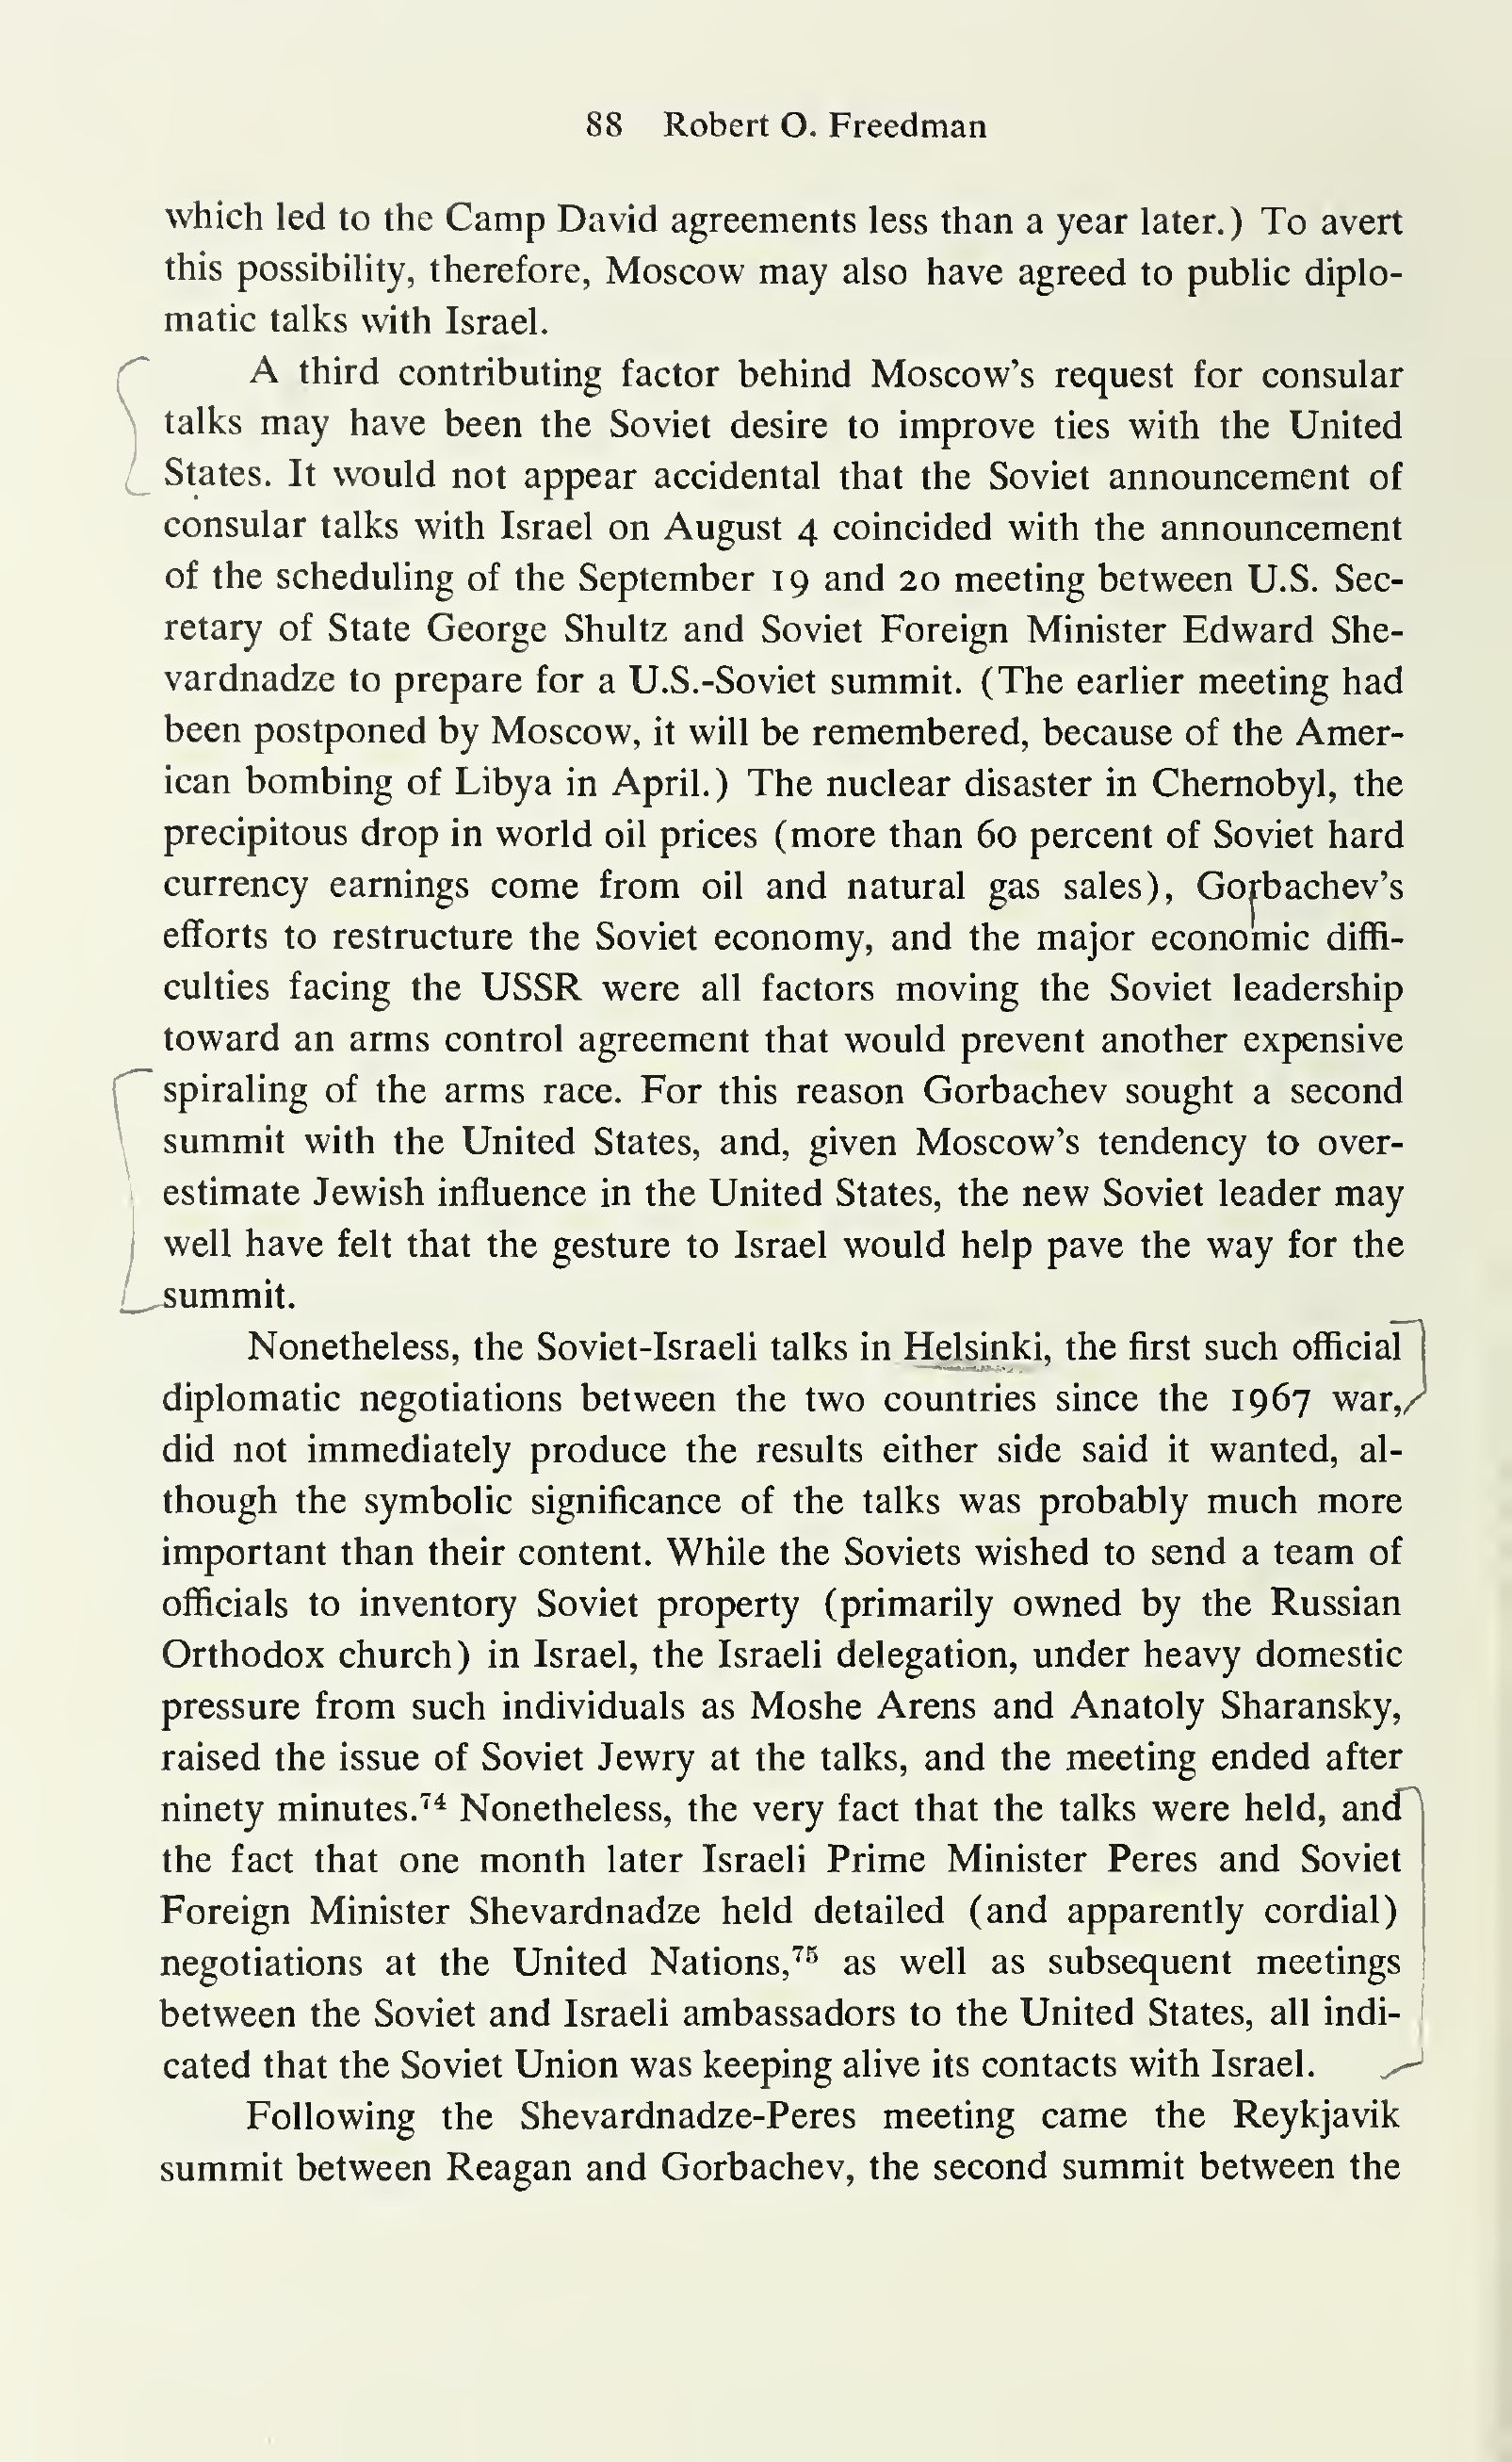 88 Robert O. Freedman
which led to the Camp David agreements less than a year later.) To avert
this possibility, therefore, Moscow may also have agreed to public diplo-
matic talks with Israel.
A third contributing factor behind Moscow's request for consular
talks may have been the Soviet desire to improve ties with the United
States. It would not appear accidental that the Soviet announcement of
consular talks with Israel on August 4 coincided with the announcement
of the scheduling of the September 19 and 20 meeting between U.S. Sec-
retary of State George Shultz and Soviet Foreign Minister Edward She-
vardnadze to prepare for a U.S.-Soviet summit. (The earlier meeting had
been postponed by Moscow, it will be remembered, because of the Amer-
ican bombing of Libya in April.) The nuclear disaster in Chernobyl, the
precipitous drop in world oil prices (more than 60 percent of Soviet hard
currency earnings come from oil and natural gas sales), Gorbachev's
efforts to restructure the Soviet economy, and the major economic diffi-
culties facing the USSR were all factors moving the Soviet leadership
toward an arms control agreement that would prevent another expensive
spiraling of the arms race. For this reason Gorbachev sought a second
summit with the United States, and, given Moscow's tendency to over-
estimate Jewish influence in the United States, the new Soviet leader may
well have felt that the gesture to Israel would help pave the way for the
summit.
Nonetheless, the Soviet-Israeli talks in Helsinki, the first such official
diplomatic negotiations between the two countries since the 1967 war,
did not immediately produce the results either side said it wanted, al-
though the symbolic significance of the talks was probably much more
important than their content. While the Soviets wished to send a team of
officials to inventory Soviet property (primarily owned by the Russian
Orthodox church) in Israel, the Israeli delegation, under heavy domestic
pressure from such individuals as Moshe Arens and Anatoly Sharansky,
raised the issue of Soviet Jewry at the talks, and the meeting ended after
ninety minutes.⁷⁴ Nonetheless, the very fact that the talks were held, and
the fact that one month later Israeli Prime Minister Peres and Soviet
Foreign Minister Shevardnadze held detailed (and apparently cordial)
negotiations at the United Nations,⁷⁵ as well as subsequent meetings
between the Soviet and Israeli ambassadors to the United States, all indi-
cated that the Soviet Union was keeping alive its contacts with Israel.
Following the Shevardnadze-Peres meeting came the Reykjavik
summit between Reagan and Gorbachev, the second summit between the